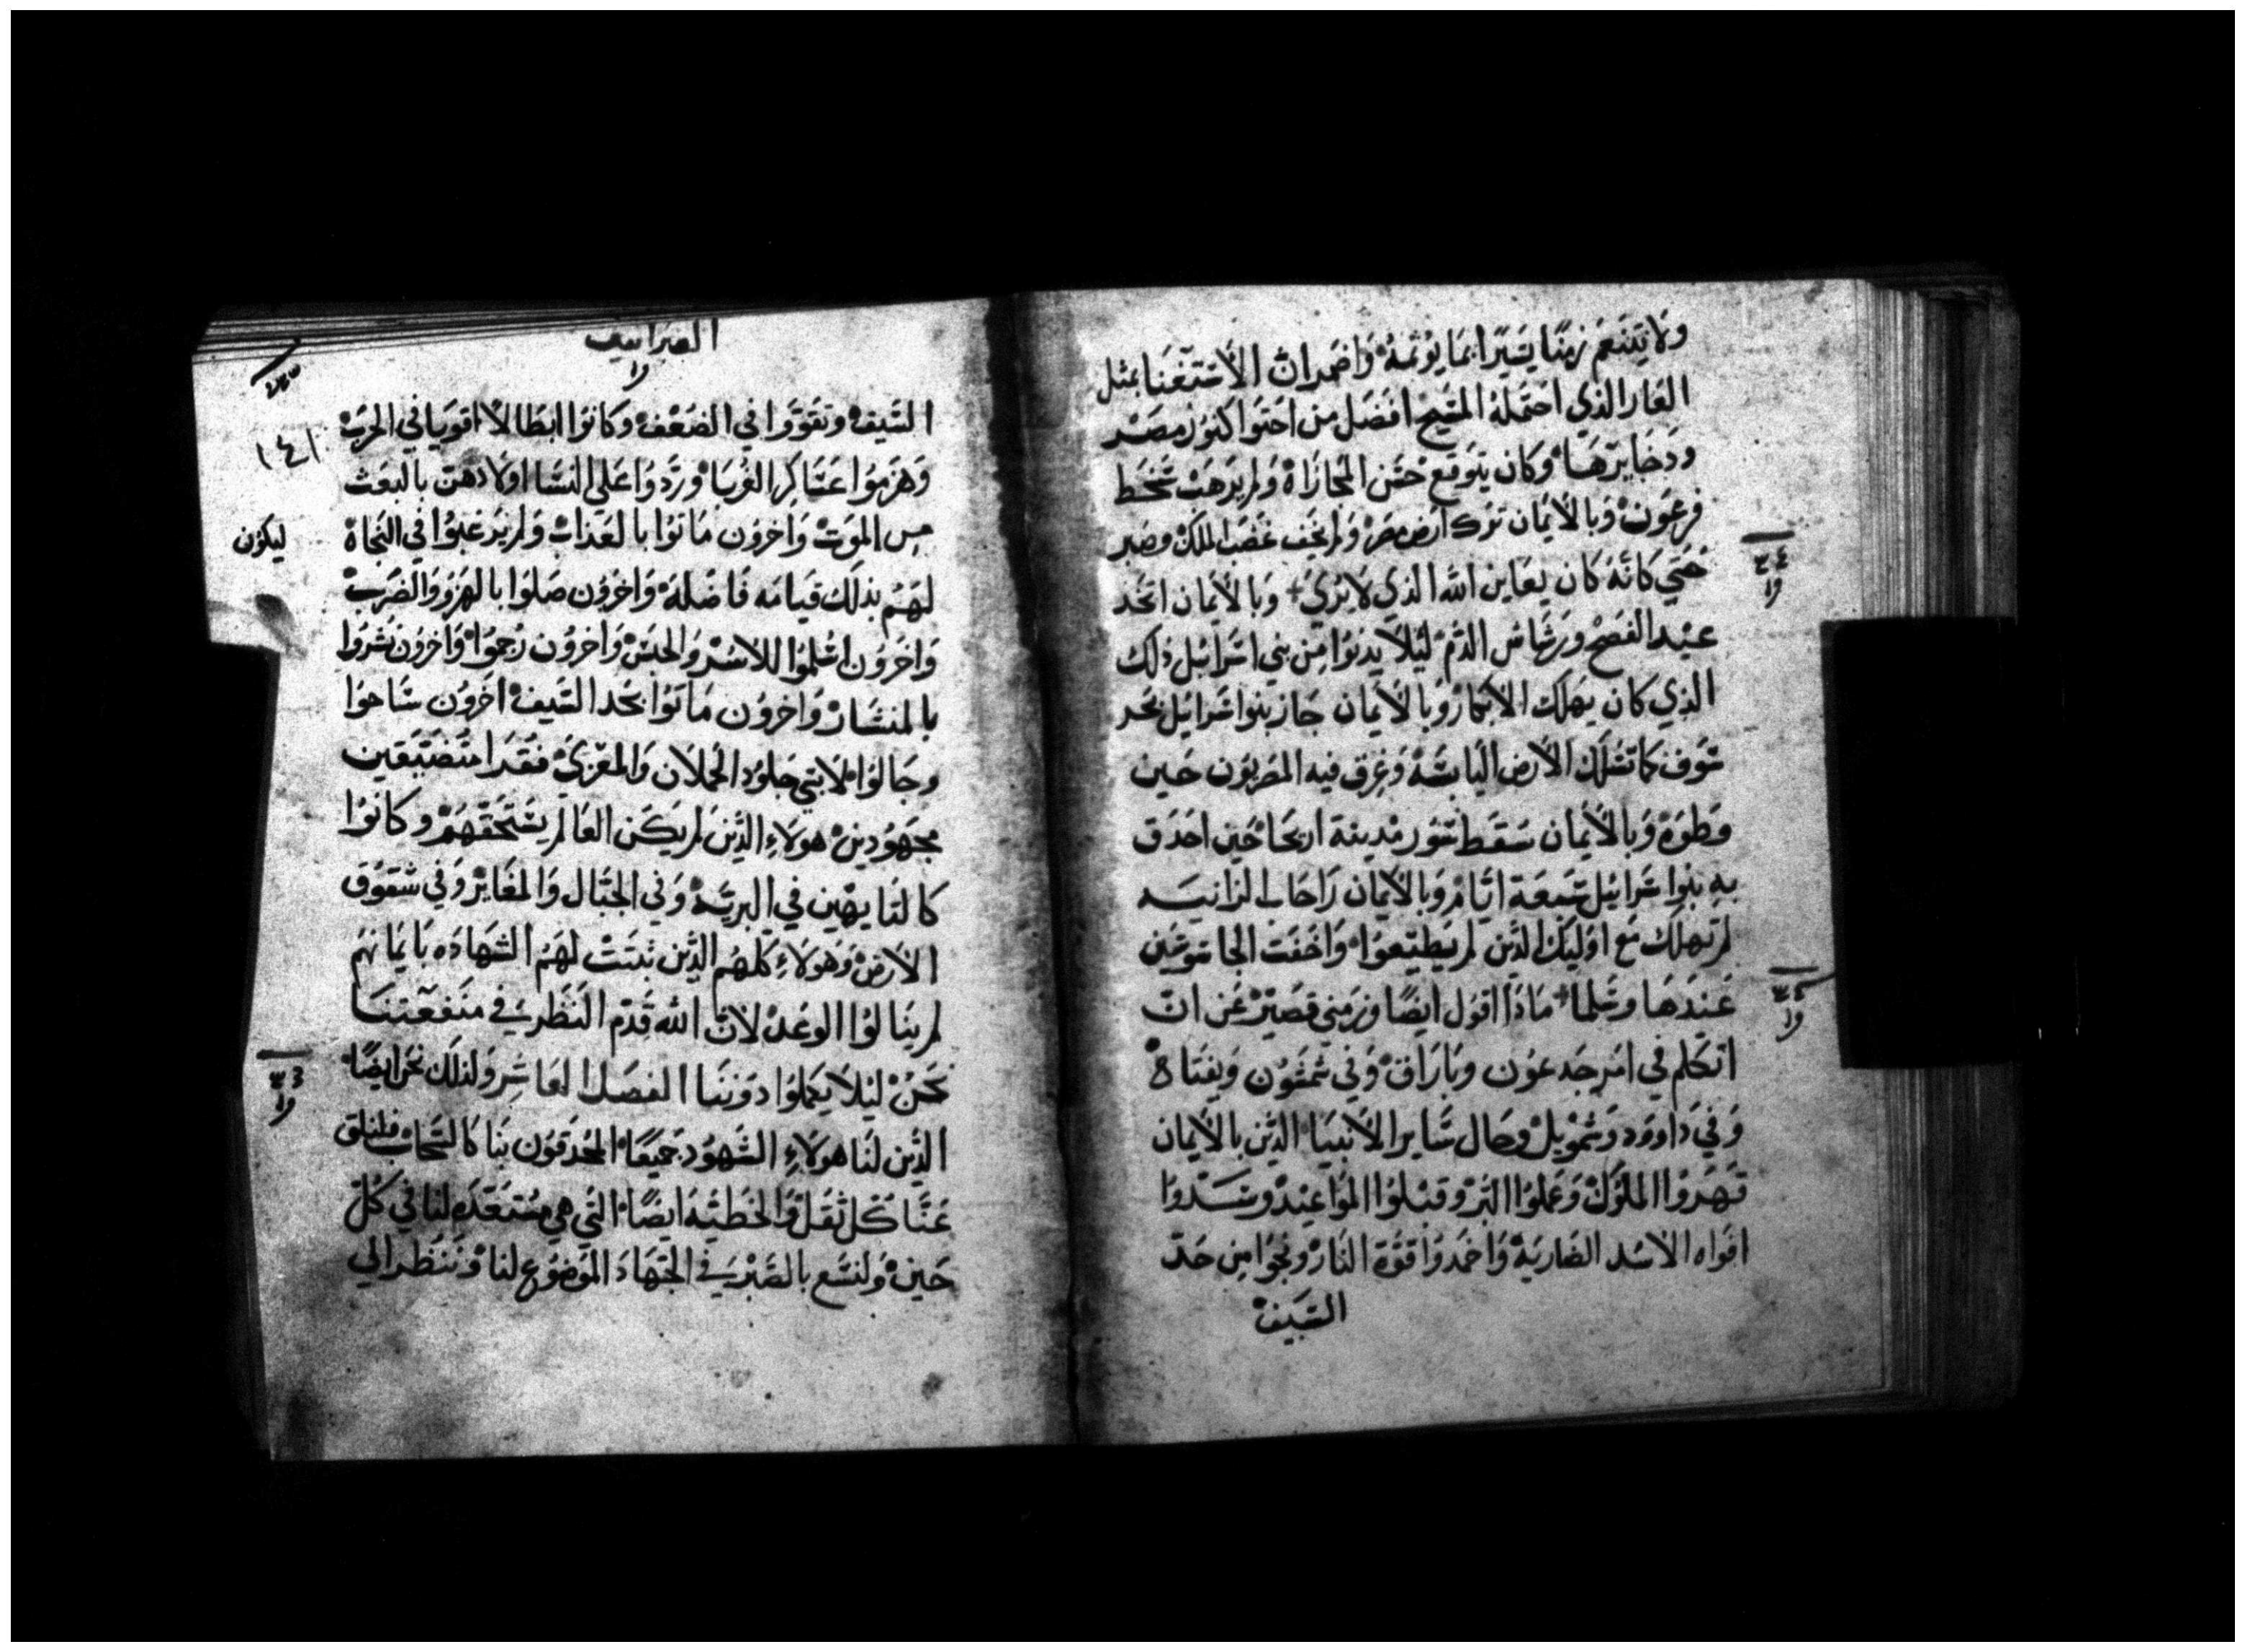 ولا يتنعم زمنًا يسيرًا بما يؤثمه واضمر ان الاستغنا بمثل
العار الذي احتمله المسيح افضل من احتوا كنوز مصر
ودخايرها وكان يتوقع حسن المجازاة ولم يرهب سخط
فرعون وبالأيمان ترك ارض مصر ولم يخف غضب الملك وصبر
حتي كانه كان يعاين الله الذي لا يري وبالأيمان اتخد
عيد الفصح ورشاش الدم ليلا يدنوا من بني اسرايل ذلك
الذي كان يهلك الابكار وبالأيمان جاز بنوا اسرايل بحر
سوف كما تسلك الأرض اليابسة وغرق فيه المصريون حين
وطوه وبالأيمان سقط سور مدينة اريحا حين احدق
به بنوا سرايل سبعة ايام وبالأيمان راحاب الزانيه
لم تهلك مع اوليك الذين لم يطيعوا واخفت الجاسوسين
عندها وسلما ماذا اقول ايضًا وزمني قصير عن ان
اتكلم في امر جدعون وباراق وفي شمشون ويفتاح
وفي داوود وشمويل وحال ساير الأنبيا الذين بالأيمان
قهروا الملوك وعملوا البر وقبلوا المواعيد وسدوا
افواه الأسد الضارية واخمدوا قوة النار ونجوا من حد
السيف
العبرانيين
١٤١
السيف وتقووا في الضعف وكانوا ابطالا اقويا في الحرب
وهزموا عساكر الغربا وردوا علي النسا اولادهن بالبعث
من الموت واخرون ماتوا بالعذاب ولم يرغبوا في النجاة ليكون
لهم بذلك قيامه فاضلة واخرون صلوا بالهزو والضرب
واخرون اسلموا للاسر والحبس واخرون رجموا واخرون نشروا
بالمنشار واخرون ماتوا بحد السيف اخرون ساحوا
وجالوا لابسي جلود الحملان والمعزي فقرا متضيقين
مجهودين هولاء الذين لم يكن العالم يستحقهم وكانوا
كالتايهين في البرية وفي الجبال والمغاير وفي شقوق
الأرض وهولاء كلهم الذين ثبتت لهم الشهاده بايمانهم
لم ينالوا الوعد لأن الله قدم النظر في منفعتنا
نحن ليلا يكملوا دوننا الفصل العاشر ولذلك نحن ايضًا
الذين لنا هولاء الشهود جميعًا المحدقون بنا كالسحاب فلنلق
عنا كل ثقل والخطية ايضًا التي هي مستعده لنا في كل
حين ولنسع بالصبر في الجهاد الموضوع لنا وننظر الي